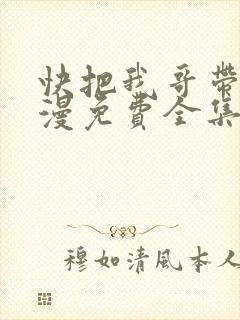 快把我哥带
漫免費全集
穆如清風本人